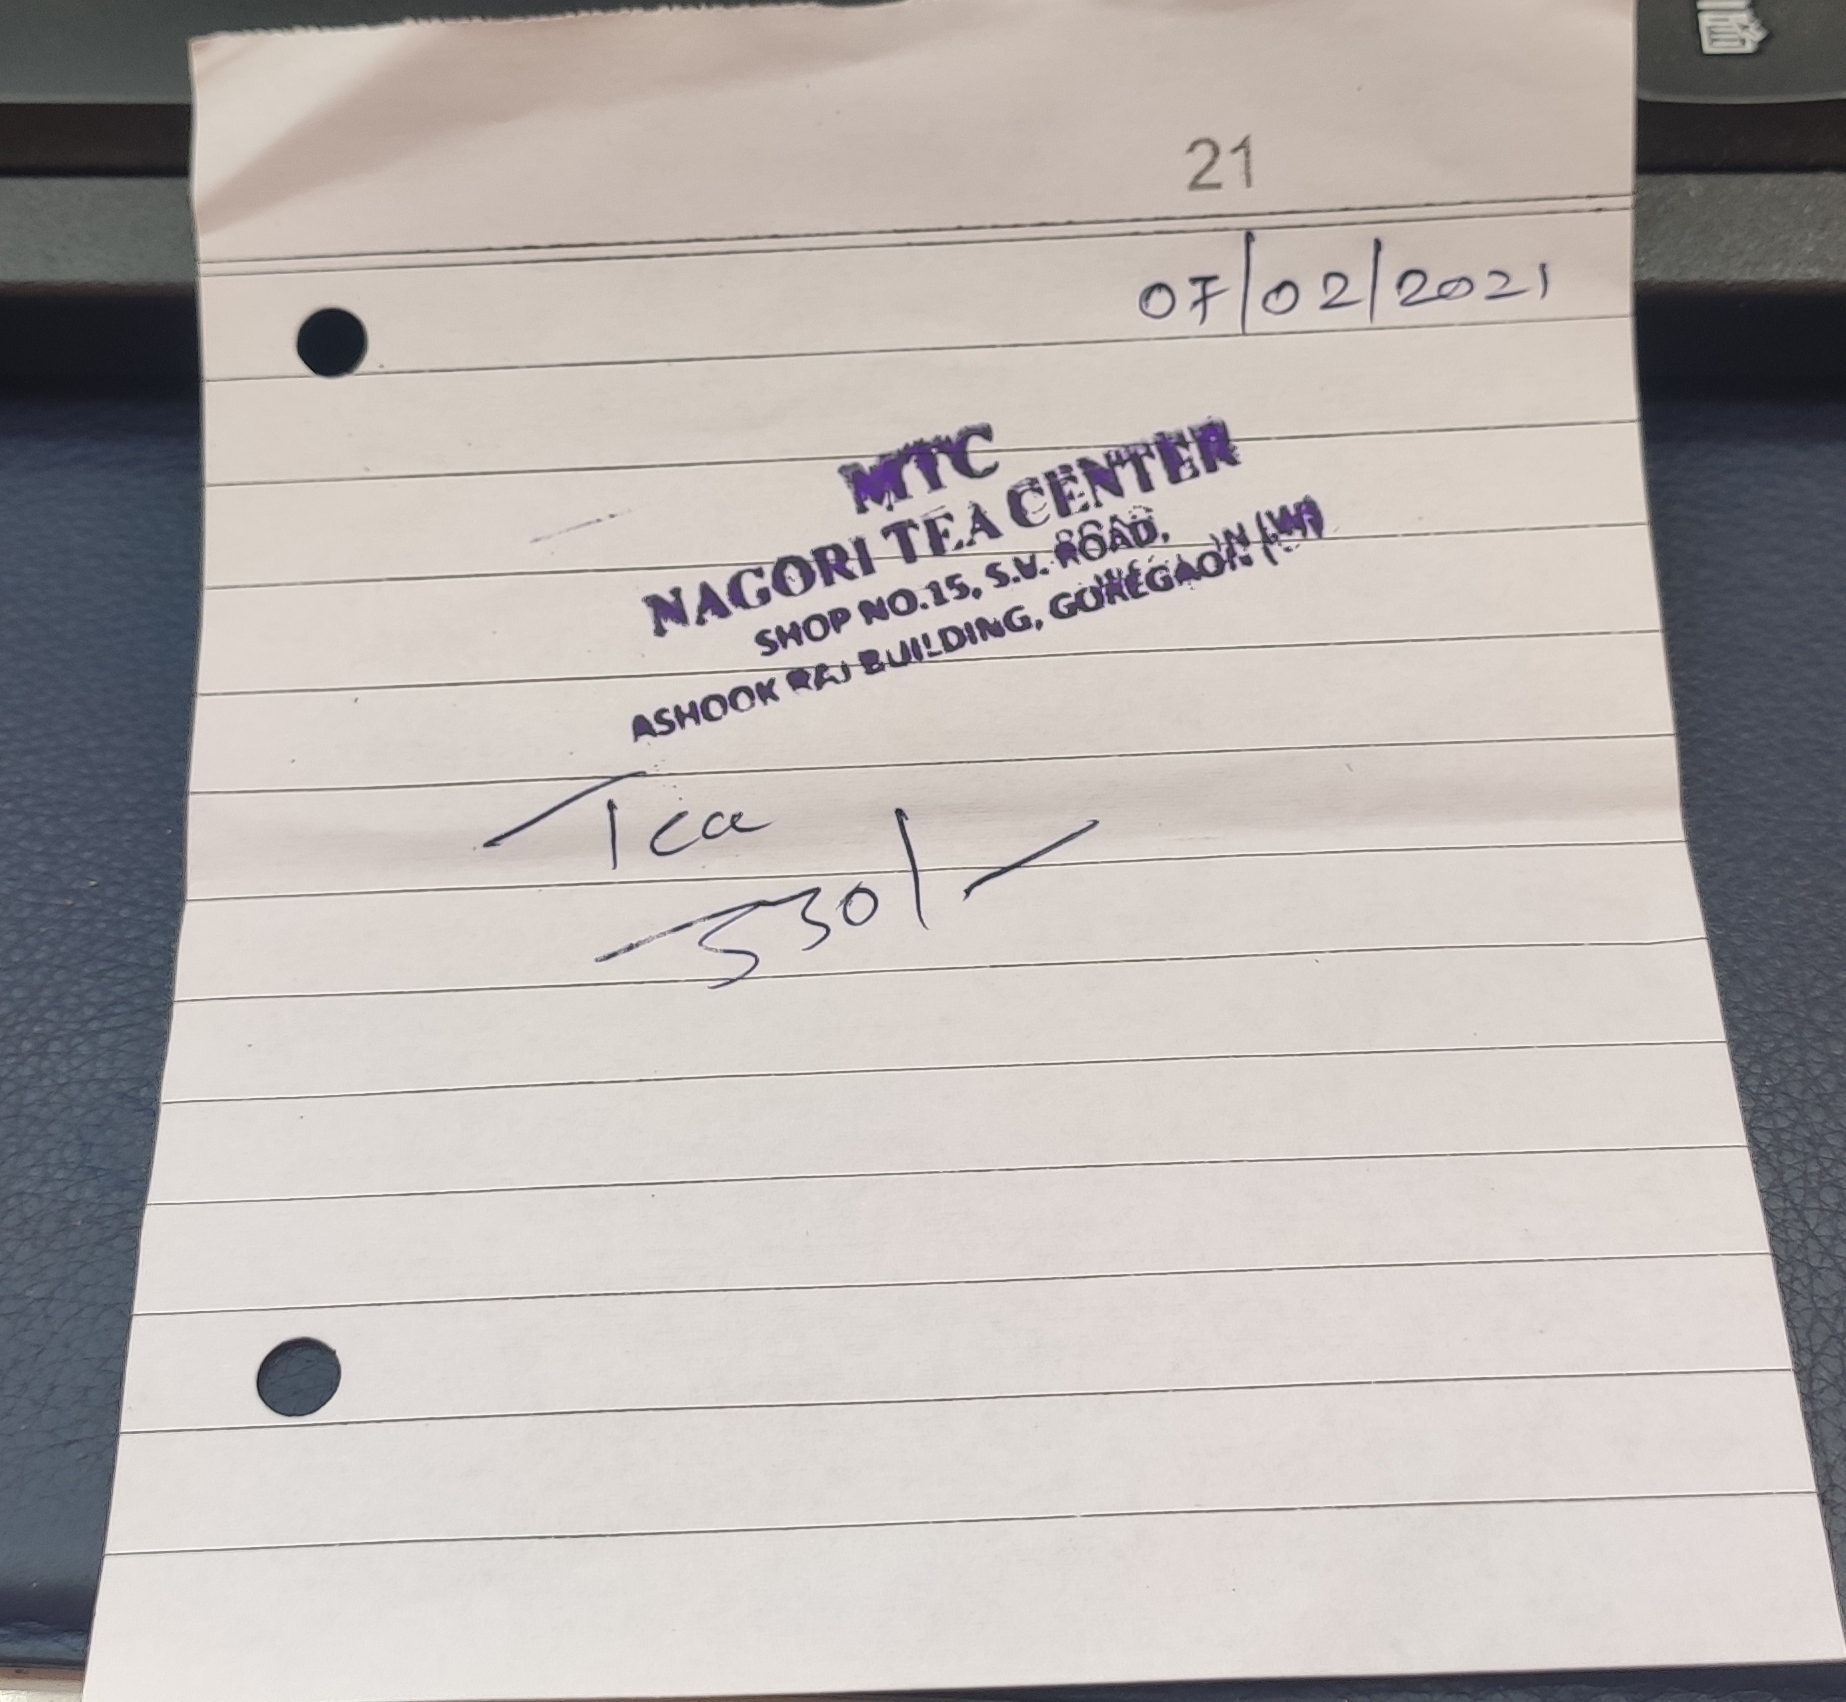 21
07/02/2021
MTC
NAGORI TEA CENTER
SHOP NO.15, S.V. ROAD,
ASHOOK RAJ BUILDING, GOREGAON (W)
Tea
530/-